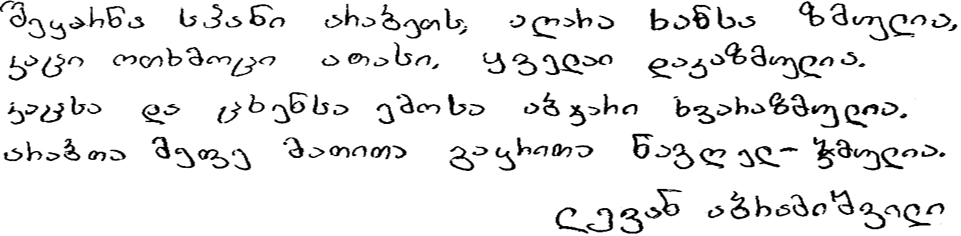 შეყარნა სპანი არაბეთს, აღარა ხანსა ზმულია,
კაცი ოთხმოცი ათასი, ყველაი დაკაზმულია.
კაცსა და ცხენსა ემოსა აბჯარი ხვარაზმულია.
არაბთა მეფე მათითა გაყრითა ნავღელ-ჯმულია.
ლევან აბრამიშვილი